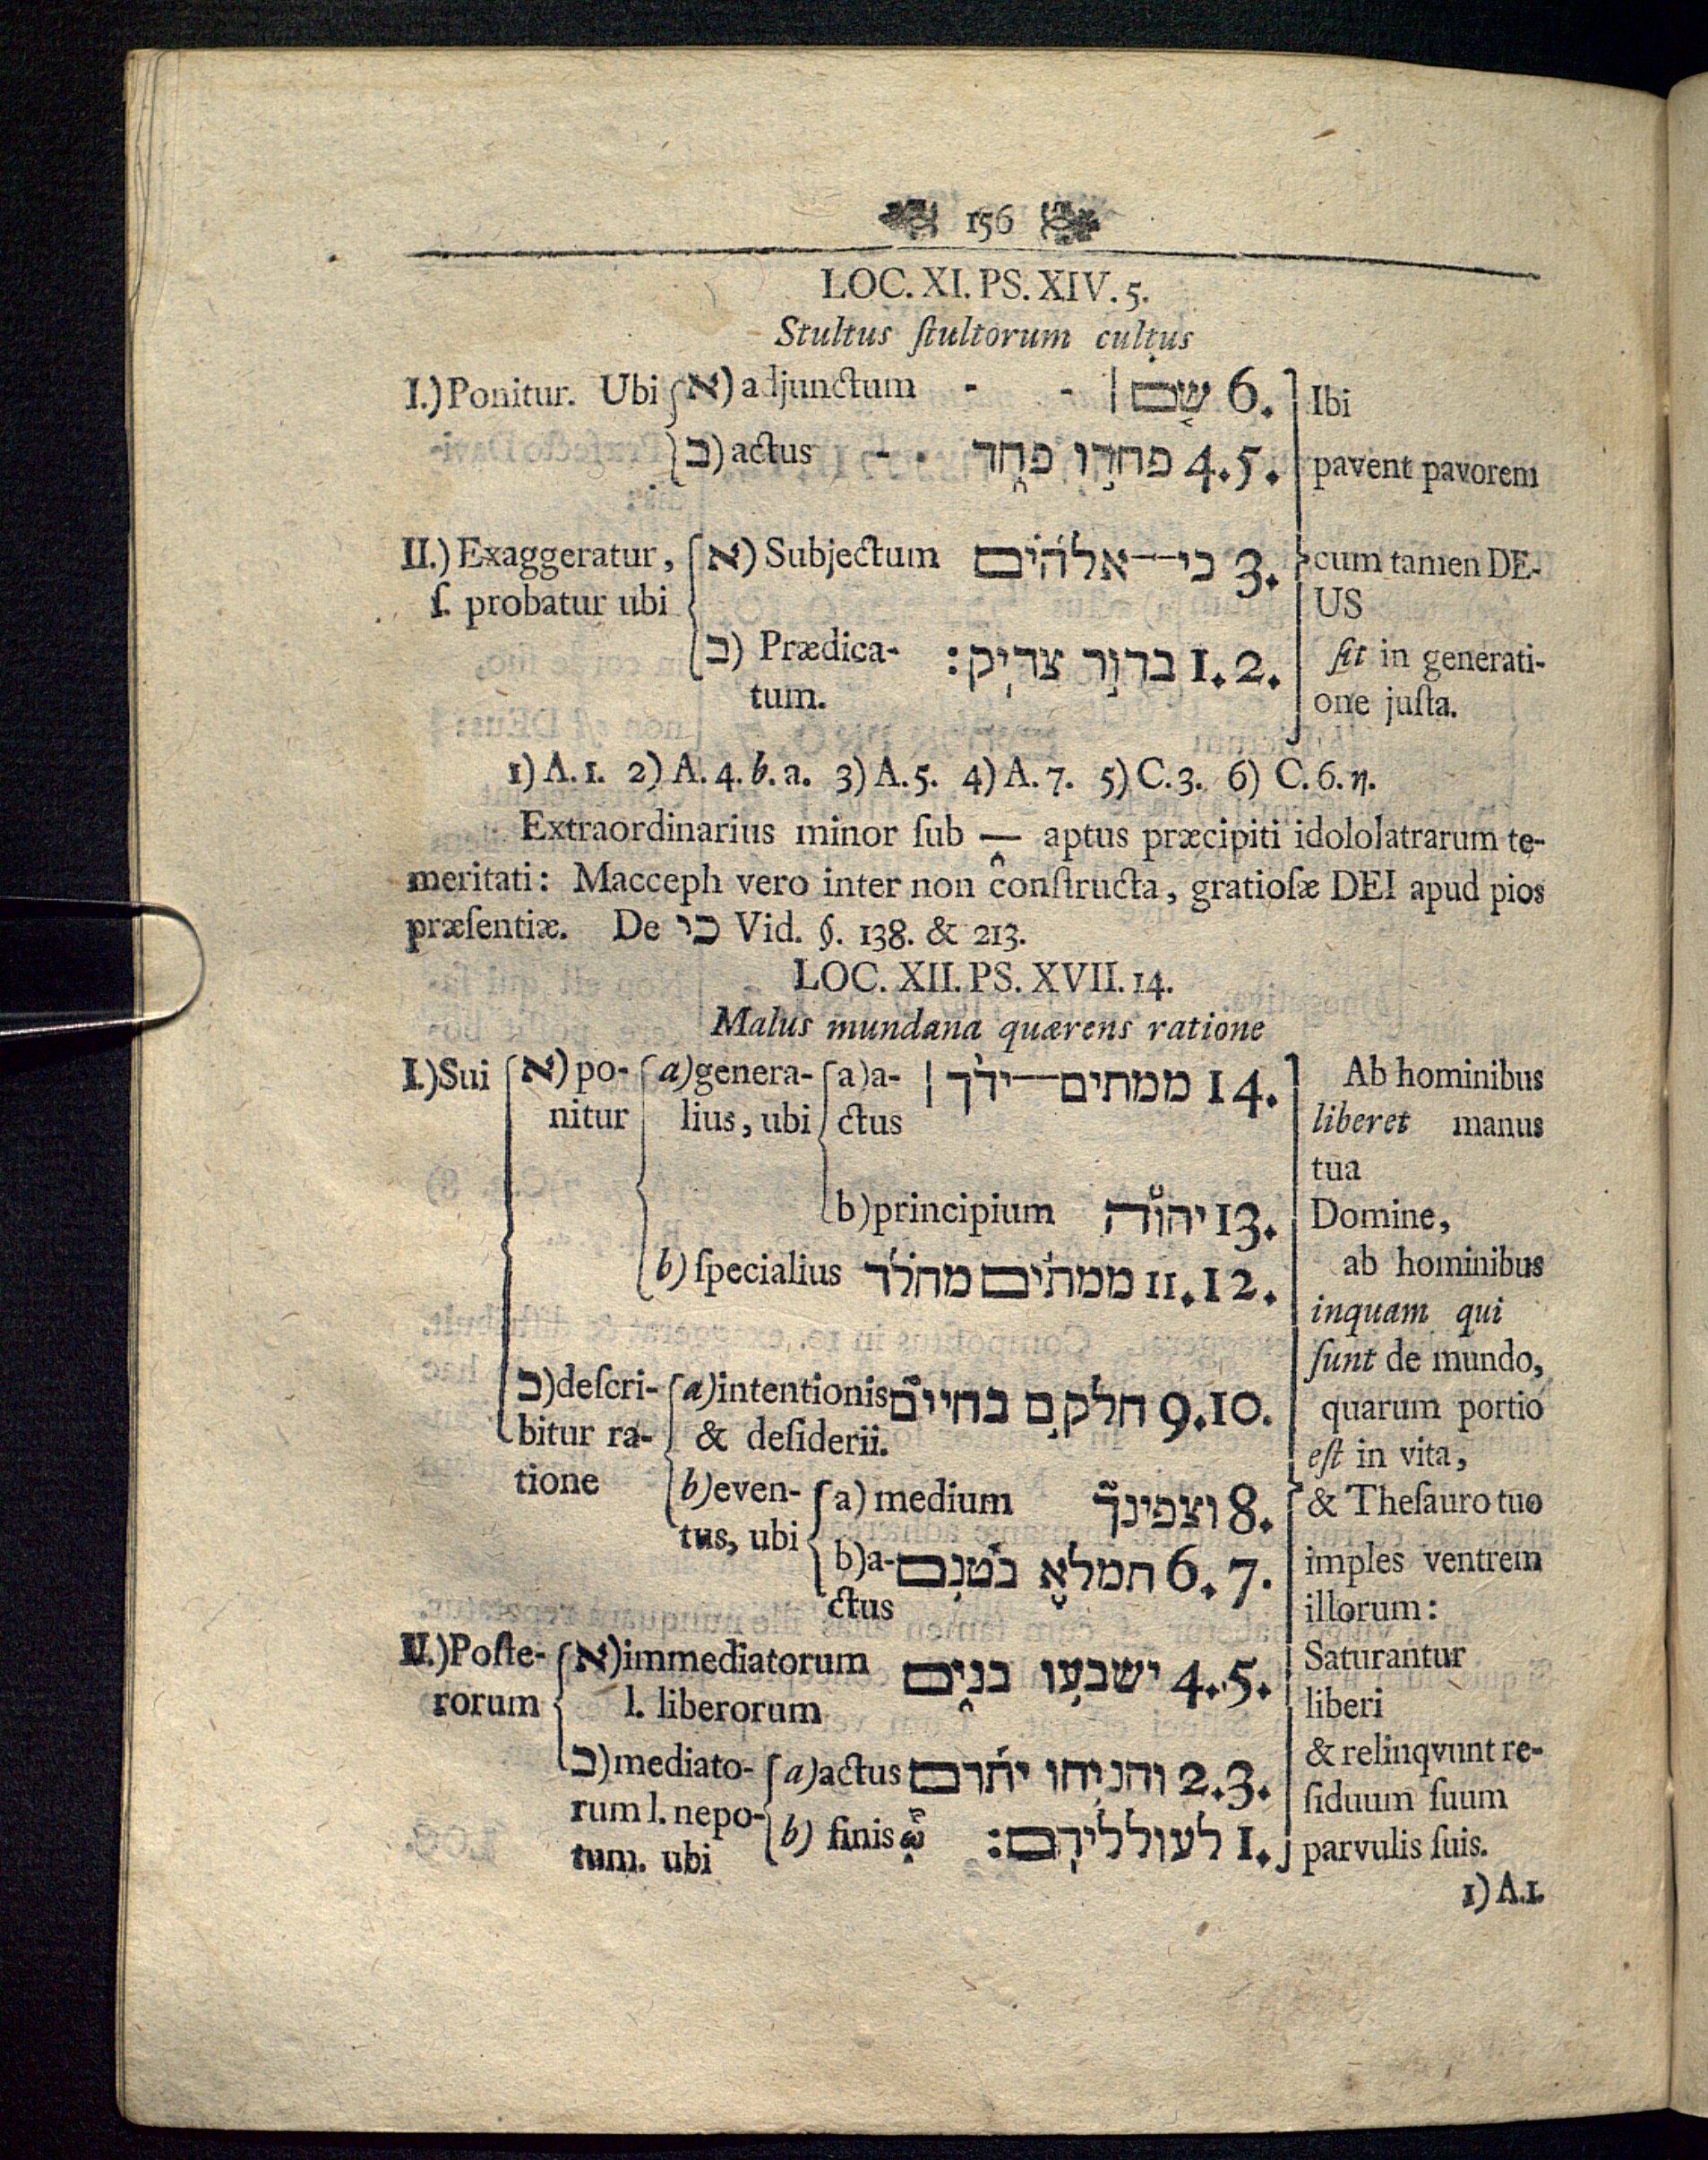 156
LOC. XI. PS. XIV. 5.
Stultus ſtultorum cultus
I.) Ponitur. Ubi א) adjunctum - - | שם 6. Ibi
ב) actus - - פחדו פחד 4. 5. pavent pavorem
II.) Exaggeratur, א) Subjectum כי—אלהים 3. cum tamen DE-
ſ. probatur ubi US
ב) Prædica- בדור צדיק: 1. 2. ſit in generati-
tum. one juſta.
1) A. 1. 2) A. 4. b. a. 3) A. 5. 4) A. 7. 5) C. 3. 6) C. 6. η.
Extraordinarius minor ſub — aptus præcipiti idololatrarum te-
meritati: Macceph vero inter non conſtructa, gratioſæ DEI apud pios
præſentiæ. De כי Vid. §. 138. & 213.
LOC. XII. PS. XVII. 14.
Malus mundana quærens ratione
I.) Sui א) po- a) genera- a) a- | ממתים—ידך 14. Ab hominibus
nitur lius, ubi ctus liberet manus
tua
b) principium יהוה 13. Domine,
b) ſpecialius ממתים מחלד 11. 12. ab hominibus
inquam qui
ſunt de mundo,
ב) deſcri- a) intentionis חלקם בחיים 9. 10. quarum portio
bitur ra- & deſiderii. est in vita,
tione b) even- a) medium וצפינך 8. & Theſauro tuo
tus, ubi b) a- תמלא בטנם 6. 7. imples ventrem
ctus illorum:
II.) Poſte- א) immediatorum ישבעו בנים 4. 5. Saturantur
rorum l. liberorum liberi
ב) mediato- a) actus והניחו יתרם 2. 3. & relinqvunt re-
rum l. nepo- ſiduum ſuum
b) finis לעולליהם: 1. parvulis ſuis.
tum. ubi
1) A. 1.